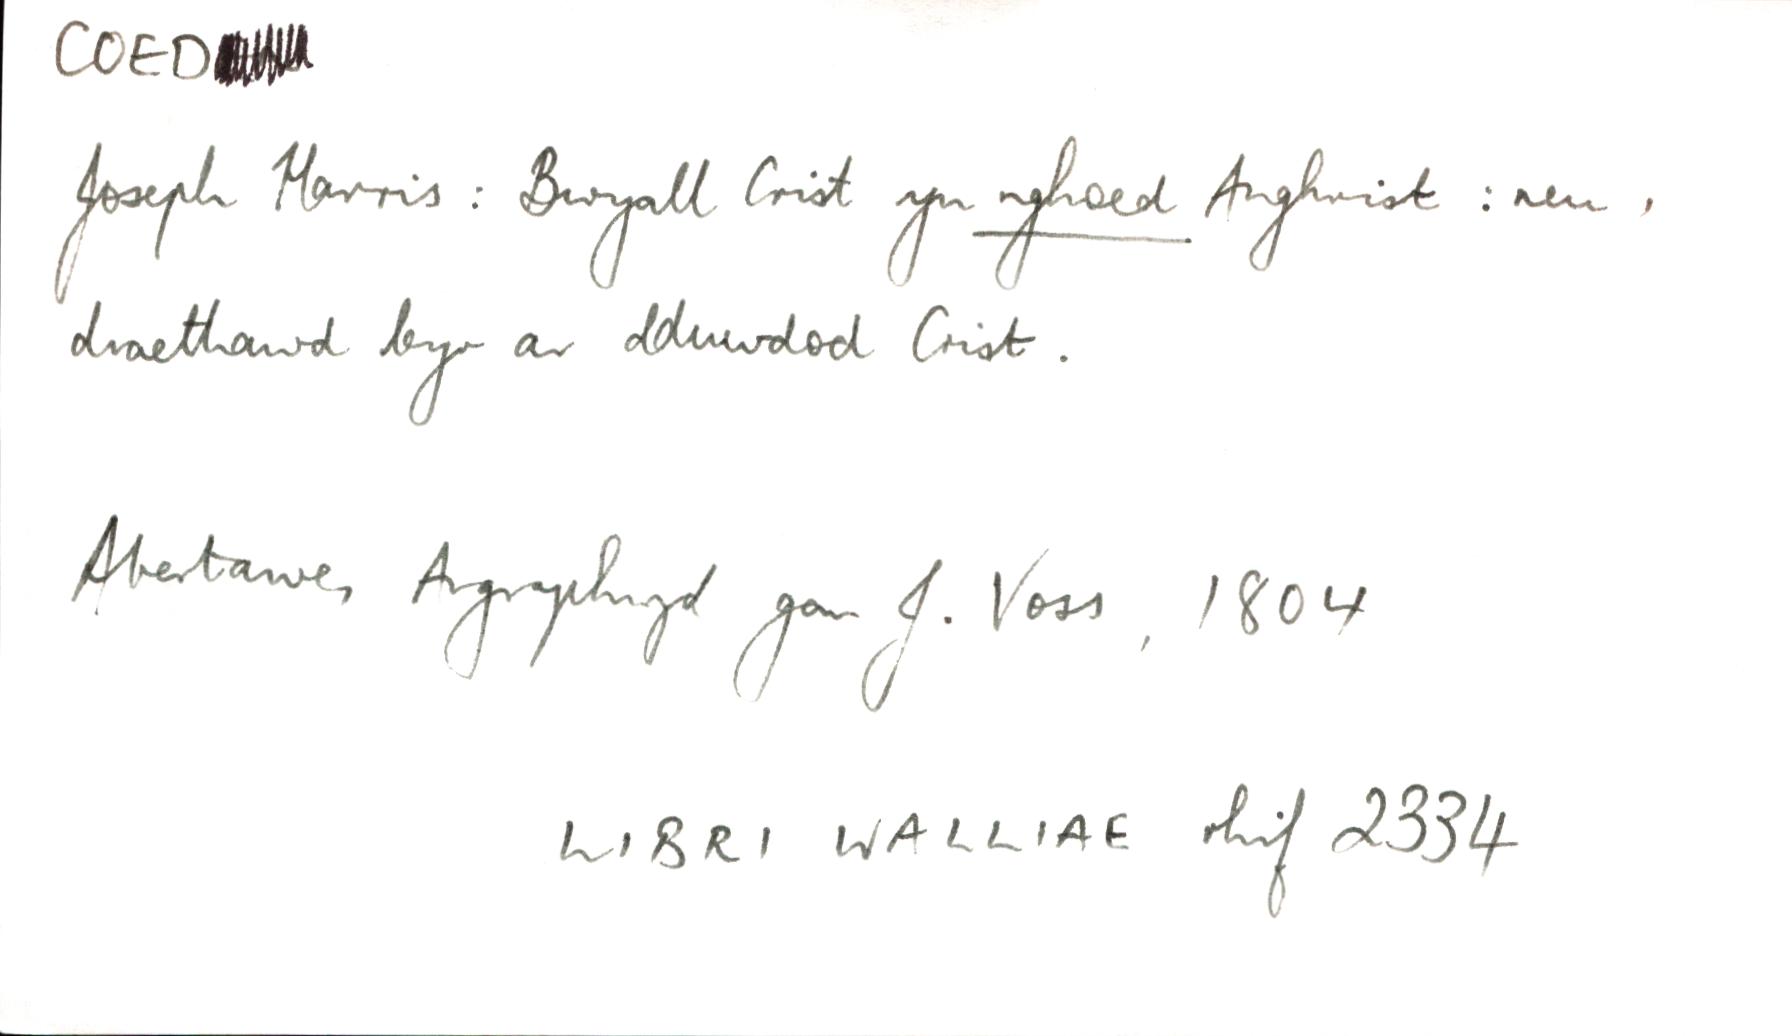 COED
Joseph Harris : Bwyall Crist yn nghoed Anghrist : neu,
draethawd byr ar dduwdod Crist.
Abertawe, Argraphwyd gan J. Voss, 1804
LIBRI WALLIAE rhif 2334